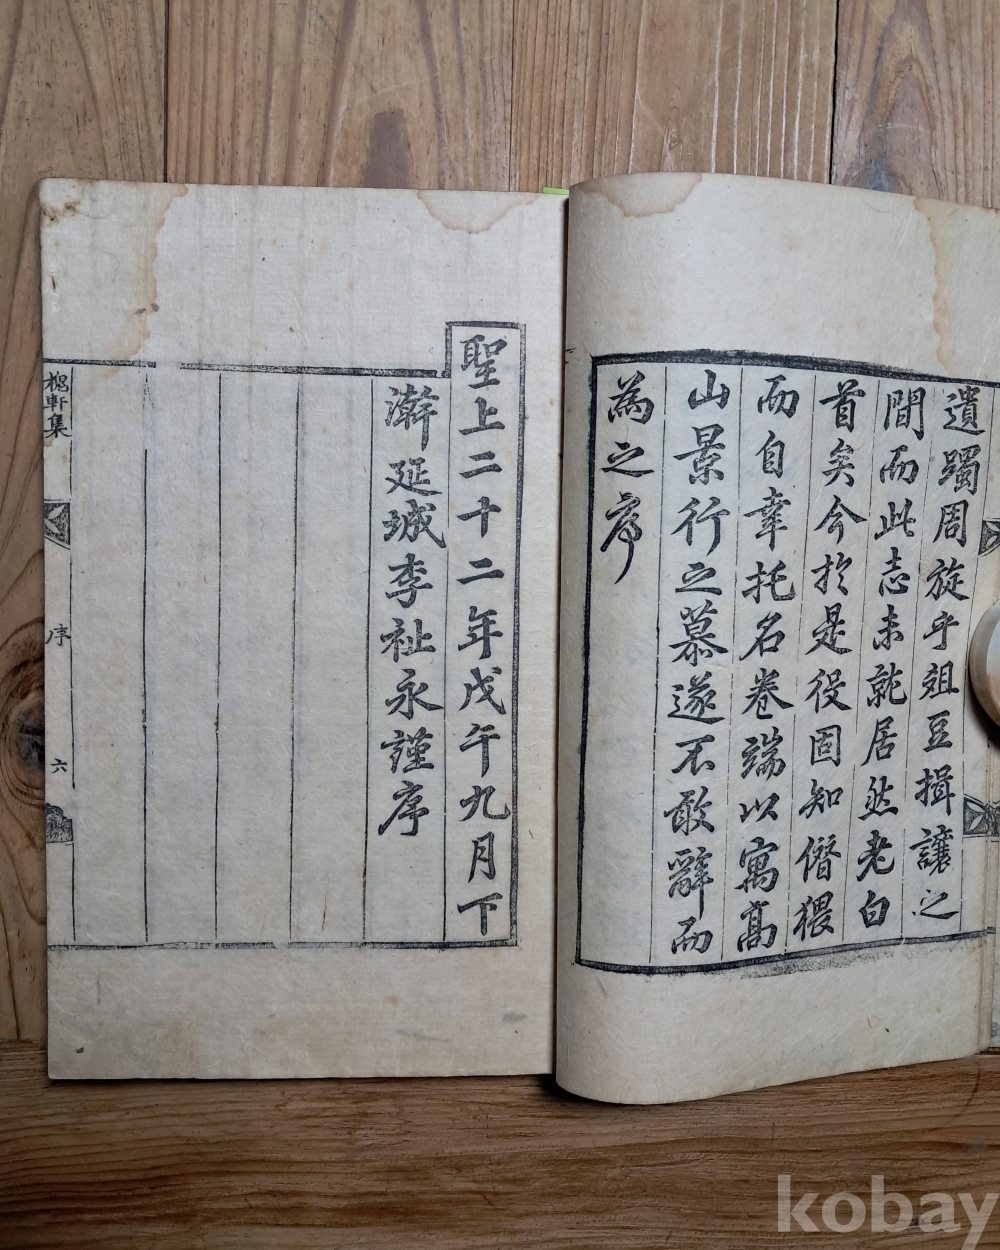 遺躅周旋乎俎豆揖讓之
間而此志未就居然老白
首矣今於是役固知僭猥
而自幸托名卷端以寓高
山景行之慕遂不敢辭而
為之序
聖上二十二年戊午九月下
澣延城李祉永謹序
槐軒集
序
六
kobay